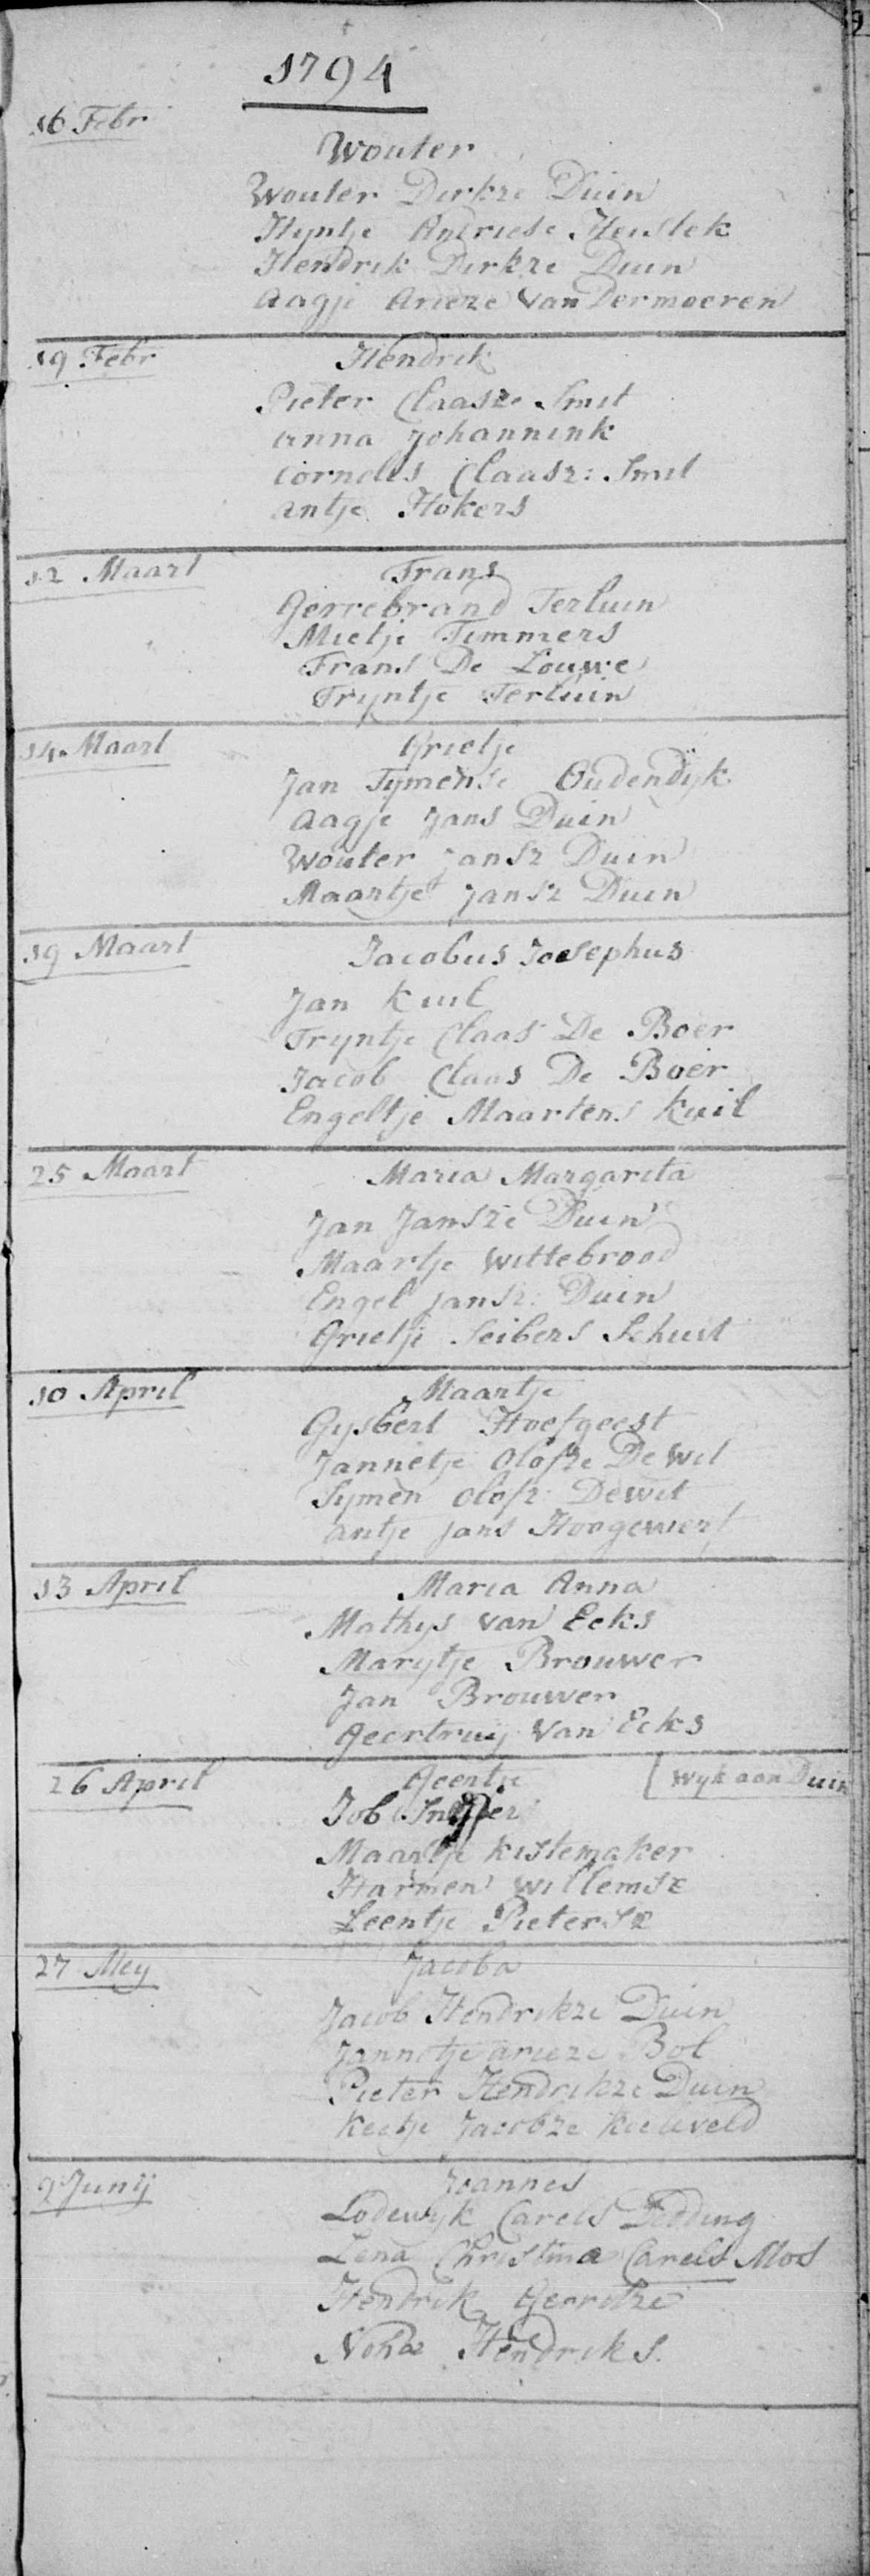 1794
16 Febr
Wouter
Wouter Dirkze Duin
Hyntje Andriese Heistek
Hendrik Dirkze Duin
Aagje Arieze van Dermoeren
19 Febr
Hendrik
Pieter Claasze Smit
Anna Johannink
Cornelis Claasz: Smit
Antje Hokers
12 Maart
Frans
Gerrebrand Terluin
Mietje Timmers
Frans De Louwe
Tryntje Terluin
14 Maart
Grietje
Jan Tymense Oudendyk
Aagje Jans Duin
Wouter Jansz Duin
Maartje Jansz Duin
19 Maart
Jacobus Joesephus
Jan Kuil
Tryntje Claas De Boer
Jacob Claas De Boer
Engeltje Maartens Kuil
25 Maart
Maria Margarita
Jan Jansze Duin
Maartje Wittebrood
Engel Jansz: Duin
Grietje Seibers Schuit
10 April
Maartje
Gysbert Hoefgeest
Jannetje Olofze De Wit
Symen Olofz Dewit
Antje Jans Hoogewerf
13 April
Maria Anna
Mathys van Ecks
Marytje Brouwer
Jan Brouwer
Geertruy van Ecks
26 April
Geertje [Wyk aan Duin
Job
Maartje Kistemaker
Harmen Willemsz
Leentje Pietersz
27 Mey
Jacoba
Jacob Hendrikze Duin
Jannetje Arieze Bol
Pieter Hendrikze Duin
Keetje Jacobze
9 Junij
Joannes
Lodewyk Carels Fedding
Lena Christina Carels Mos
Hendrik Gerritze
Hendriks.